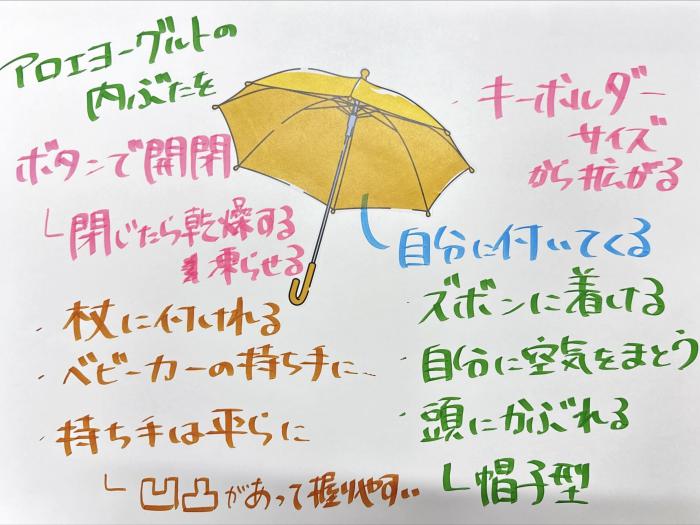 アロエヨーグルトの
内ぶたを
ボタンで開閉
└閉じたら乾燥する
凍らせる
・キーホルダー
サイズ
から拡がる
└自分に付いてくる
・杖に付けれる
・ベビーカーの持ち手に…
・持ち手は平らに
└凹凸があって握りやすい
・ズボンに着ける
・自分に空気をまとう
・頭にかぶれる
└帽子型